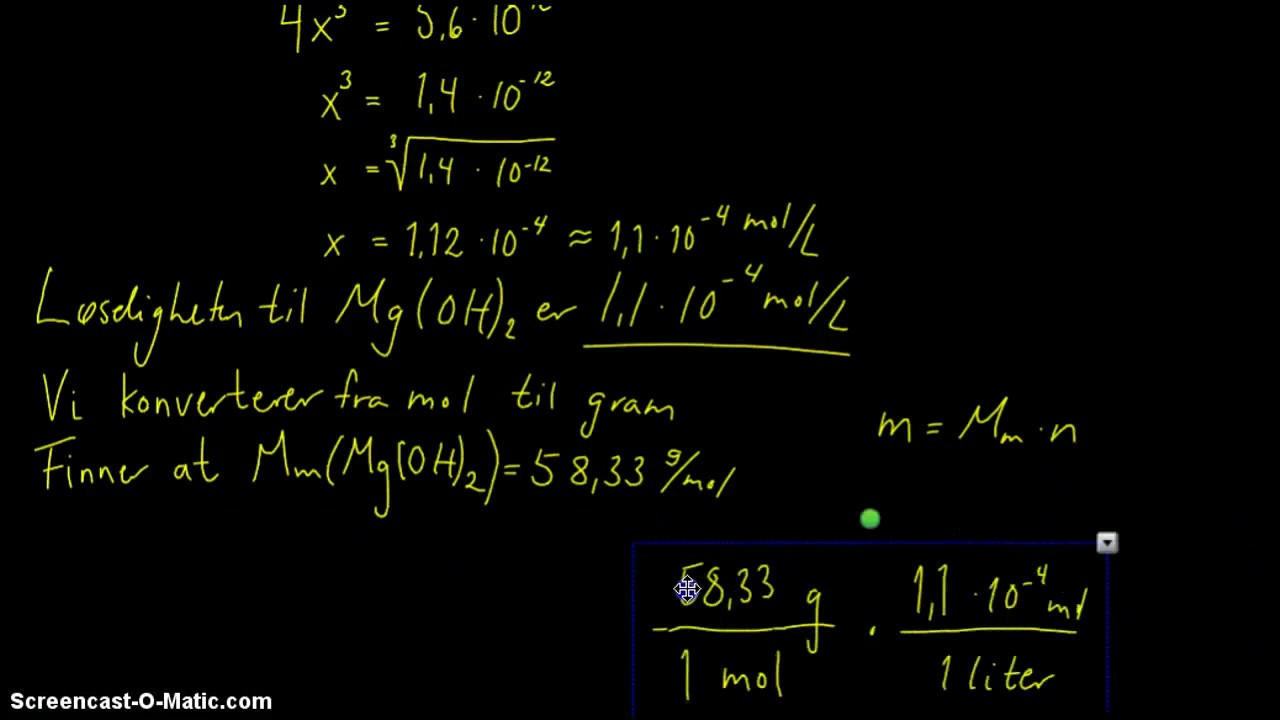 4x³ = 5,6 · 10⁻¹²
x³ = 1,4 · 10⁻¹²
x = ∛1,4 · 10⁻¹²
x = 1,12 · 10⁻⁴ ≈ 1,1 · 10⁻⁴ mol/L
Løseligheten til Mg(OH)₂ er 1,1 · 10⁻⁴ mol/L
Vi konverterer fra mol til gram
m = Mm · n
Finner at Mm(Mg(OH)₂) = 58,33 g/mol
58,33 g / 1 mol · 1,1 · 10⁻⁴ mol / 1 liter
Screencast-O-Matic.com